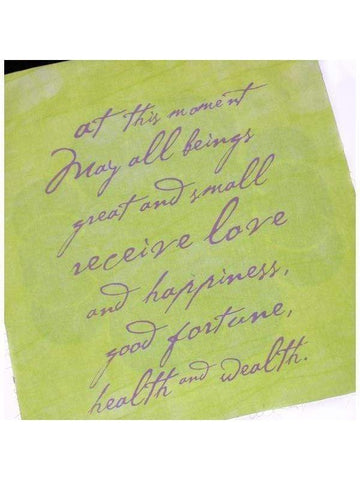 at this moment
May all beings
great and small
receive love
and happiness,
good fortune,
health and wealth.